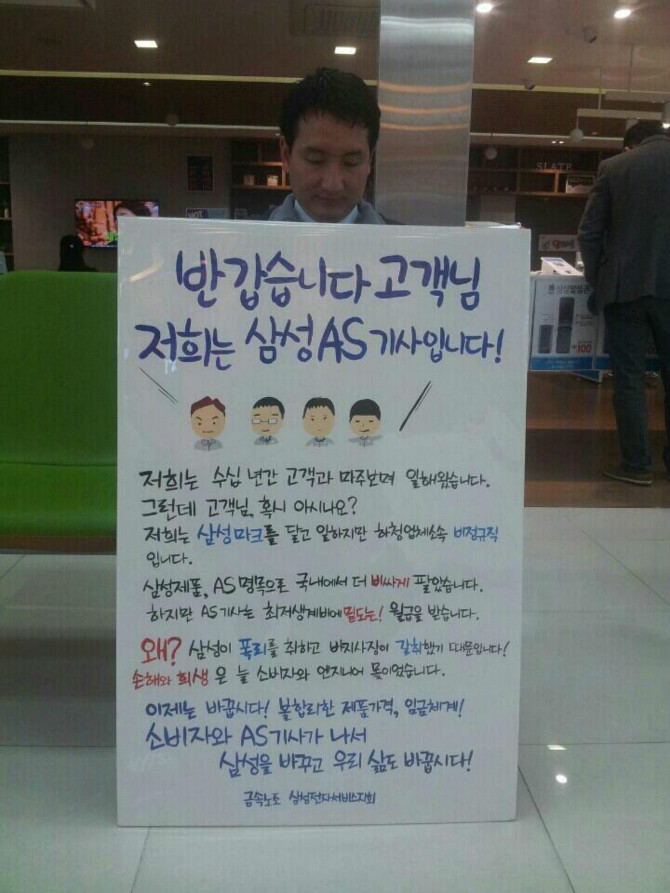 반갑습니다 고객님
저희는 삼성AS기사입니다!
저희는 수십 년간 고객과 마주보며 일해왔습니다.
그런데 고객님, 혹시 아시나요?
저희는 삼성마크를 달고 일하지만 하청업체소속 비정규직
입니다.
삼성제품, AS명목으로 국내에서 더 비싸게 팔았습니다.
하지만 AS기사는 최저생계비에 밑도는! 월급을 받습니다.
왜? 삼성이 폭리를 취하고 바지사장이 갈취했기 때문입니다!
손해와 희생은 늘 소비자와 엔지니어 몫이었습니다.
이제는 바꿉시다! 불합리한 제품가격, 임금체계!
소비자와 AS기사가 나서
삼성을 바꾸고 우리 삶도 바꿉시다!
금속노조 삼성전자서비스지회
SLATE